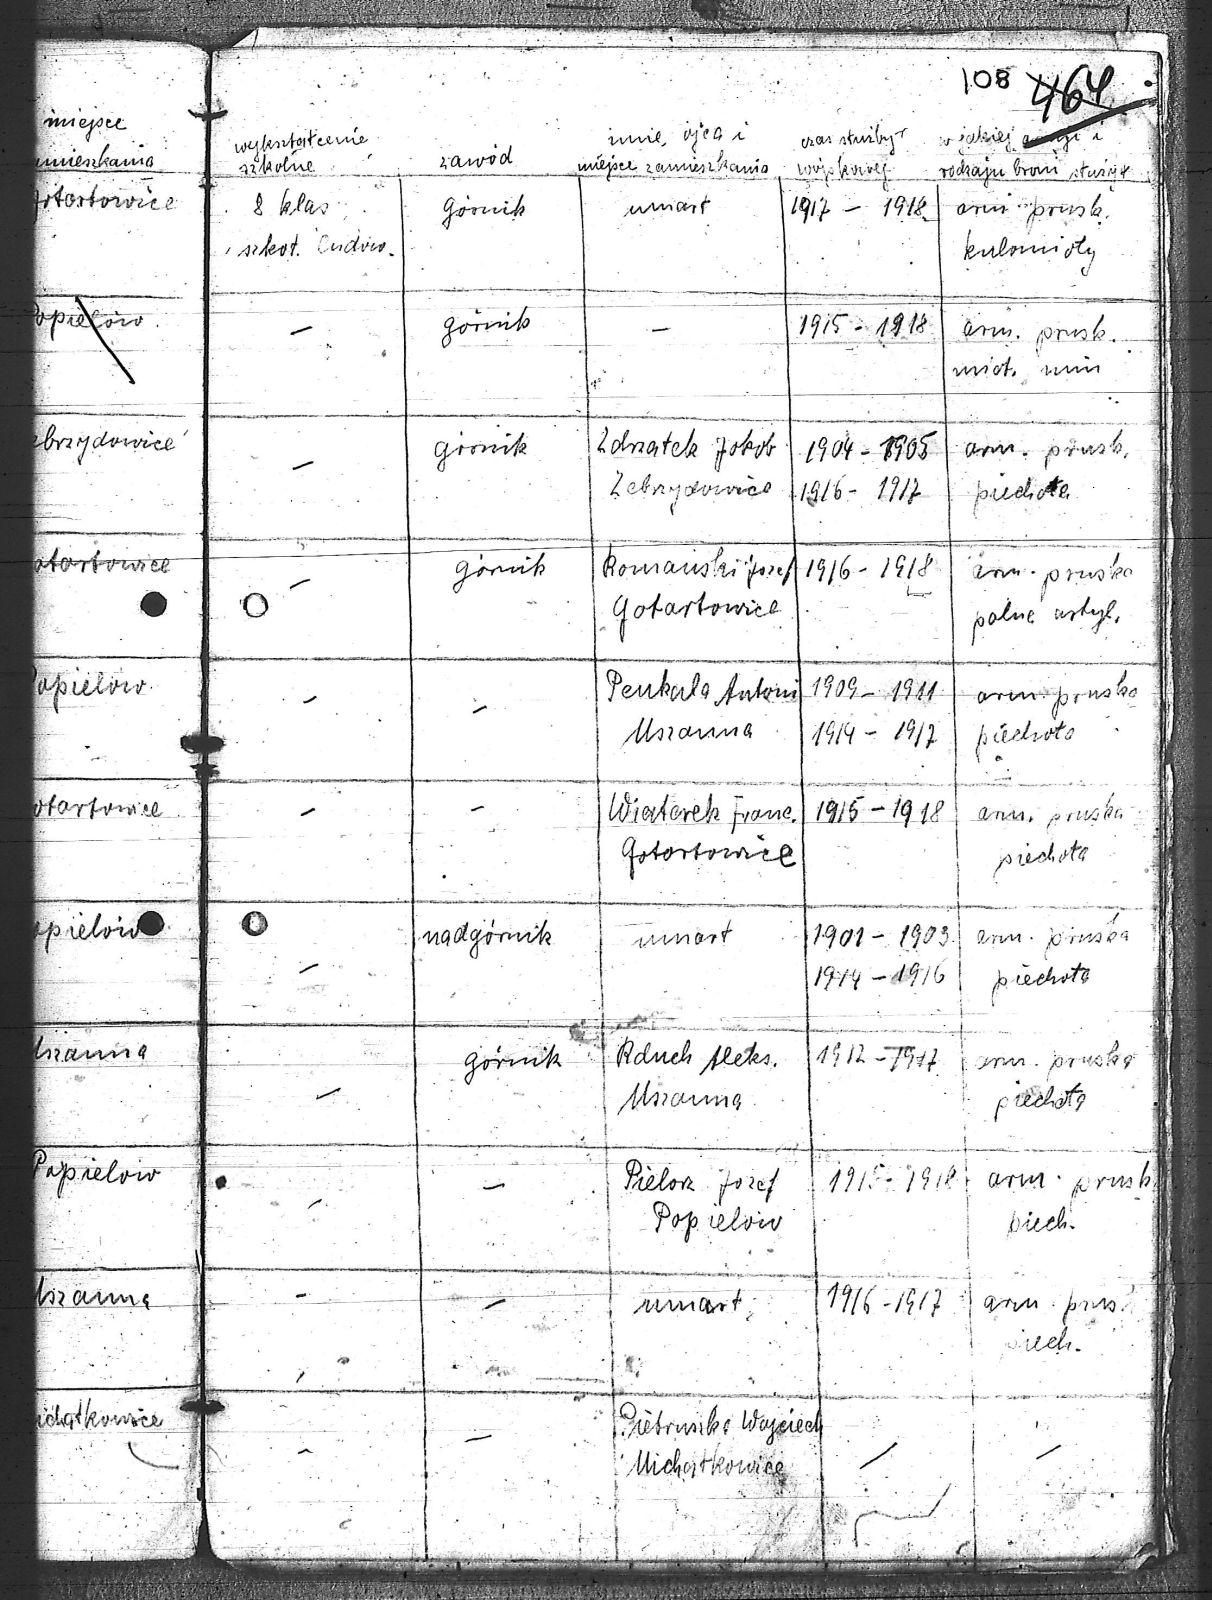 108 464
miejsce
zamieszkania
wykształcenie
szkolne
zawód
imię ojca i
miejsce zamieszkania
czas służby
wojskowej
w jakiej armji i
rodzaju broni służył
otartowice 8 klas górnik umarł 1917 - 1918 arm prusk.
szkoł. Ludow. kulomioty
opielów — górnik — 1915 - 1918 arm. prusk.
miot. min
ebrzydowice — górnik Zdrzałek Jokób 1904 - 1905 arm. prusk.
Zebrzydowice 1916 - 1917 piechota
otartowice — górnik Romański Józef 1916 - 1918 arm. pruska
Gotartowice polna artyl.
Popielów — — Penkala Antoni 1909 - 1911 arm. pruska
Mszanna 1914 - 1917 piechota
otartowice — — Wiatarek Franc. 1915 - 1918 arm. pruska
Gotartowice piechota
opielów — nadgórnik umarł 1901 - 1903 arm. pruska
1914 - 1916 piechota
szanna — górnik Rduch Aleks. 1912 - 1917 arm. pruska
Mszanna piechota
Popielów — — Pielorz Józef 1915 - 1918 arm. prusk
Popielów piech.
szanna — — umarł 1916 - 1917 arm. prus.
piech.
ichałkowice — — Pietruszka Wojciech — —
Michałkowice